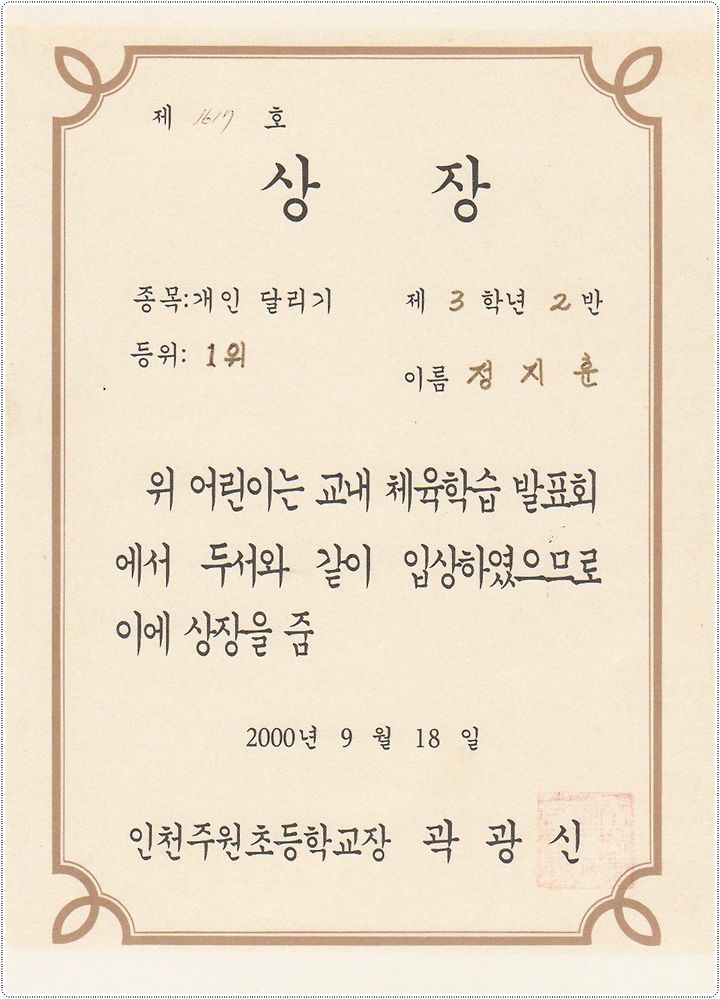 제 1617 호
상 장
종목:개인 달리기 제 3 학년 2 반
등위: 1위
이름 정 지 훈
위 어린이는 교내 체육학습 발표회
에서 두서와 같이 입상하였으므로
이에 상장을 줌
2000년 9 월 18 일
인천주원초등학교장 곽 광 신